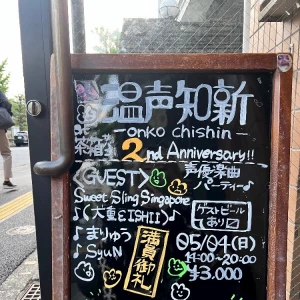 温声知新
-onko chishin-
2nd Anniversary!!
<GUEST>
声優楽曲
パーティー♪
Sweet Sling Singapore
♪<大重EISHI>
♪まりゅう
♪SyuN
満員御礼
ゲストビール
あり
05/04(日)
14:00~20:00
¥3,000